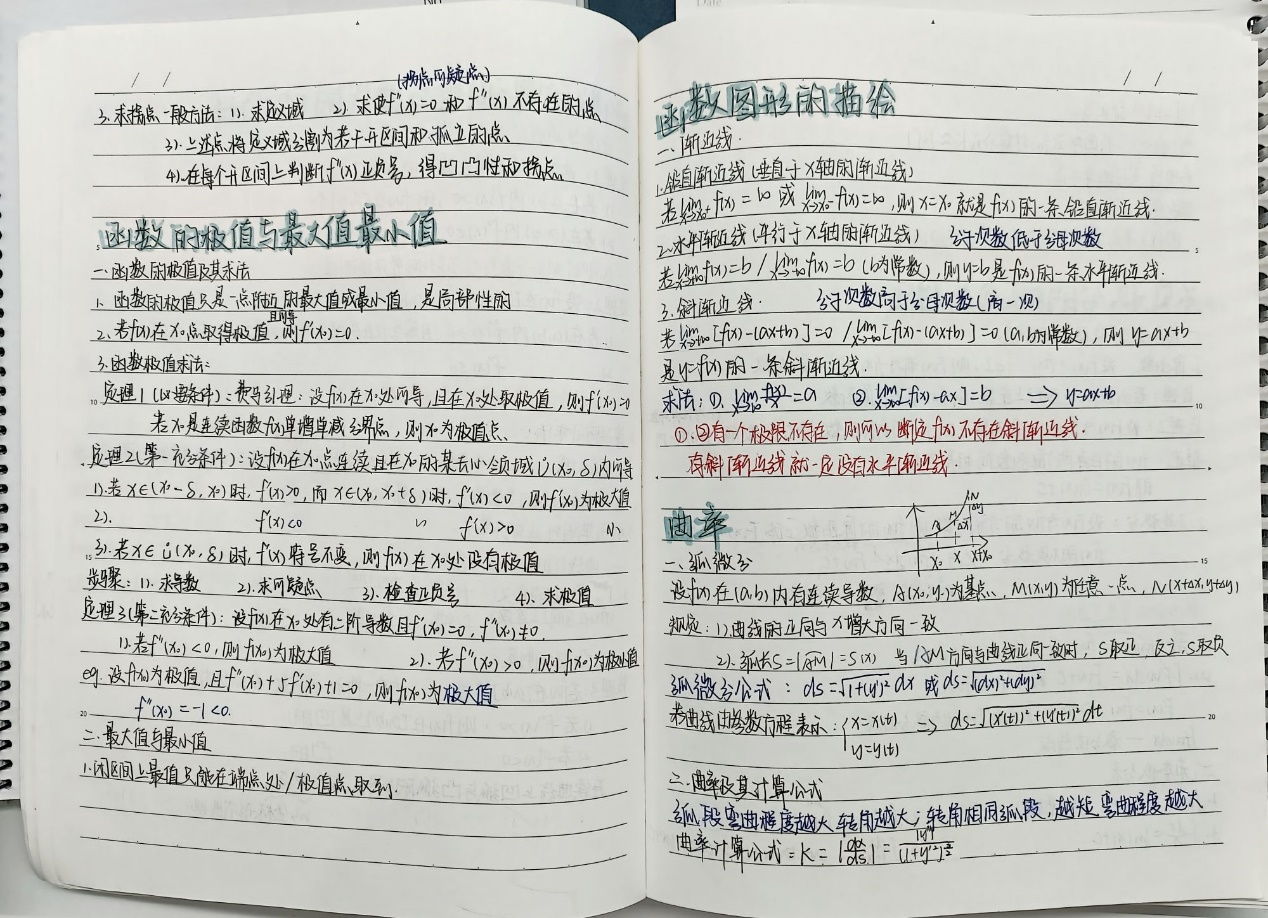 (拐点可疑点)
3. 求拐点一般方法：1). 求定义域 2) 求使f''(x)=0 和 f''(x) 不存在的点
3). 上述点将定义域分割为若干开区间和孤立的点
4). 在每个开区间上判断f''(x)正负号，得凹凸性和拐点
函数的极值与最大值最小值
一. 函数的极值及其求法
1. 函数的极值只是一点附近的最大值或最小值 是局部性的
且可导
2. 若f(x)在x₀点取得极值，则f'(x₀)=0.
3. 函数极值求法:
定理1 (必要条件): 费马引理: 设f(x)在x₀处可导,且在x₀处取极值, 则f'(x₀)=0
若x₀是连续函数f(x)单增单减分界点，则x₀为极值点.
定理2(第一充分条件): 设f(x)在x₀点连续且在x₀的某去心邻域 Ů(x₀, δ)内可导
1). 若 x∈(x₀-δ, x₀) 时, f'(x)>0, 而 x∈(x₀, x₀+δ) 时, f'(x)<0 , 则f(x₀)为极大值
2). f'(x)<0 〃 f'(x)>0 小
3). 若x∈ Ů(x₀, δ) 时, f'(x) 符号不变, 则f(x) 在 x₀处没有极值
步骤: 1). 求导数 2). 求可疑点 3). 检查正负号 4). 求极值
定理3(第二充分条件): 设f(x)在x₀处有二阶导数且f'(x₀)=0, f''(x₀)≠0.
1). 若f''(x₀)<0, 则f(x₀)为极大值 2). 若f''(x₀)>0 , 则f(x₀)为极小值
eg. 设f(x₀)为极值, 且f''(x)+5f'(x)+1=0, 则f(x₀)为极大值
f''(x₀)=-1<0.
二. 最大值与最小值
1. 闭区间上最值只能在端点处/极值点取到.
函数图形的描绘
一. 渐近线.
1. 铅直渐近线 (垂直于x轴的渐近线)
若lim x→x₀⁺ f(x) = ∞ 或 lim x→x₀⁻ f(x)=∞, 则x=x₀就是f(x)的一条铅直渐近线.
2. 水平渐近线 (平行于x轴的渐近线) 分子次数低于分母次数
若lim x→+∞ f(x)=b / lim x→-∞ f(x)=b (b为常数), 则y=b是f(x)的一条水平渐近线.
3. 斜渐近线. 分子次数高于分母次数(高一次)
若lim x→+∞ [f(x)-(ax+b)]=0 / lim x→-∞ [f(x)-(ax+b)]=0 (a,b为常数), 则 y=ax+b
是y=f(x)的一条斜渐近线.
求法: ①. lim x→∞ f(x)/x =a ②. lim x→∞ [f(x)-ax]=b ⇒ y=ax+b
①.②有一个极限不存在, 则可以断定f(x)不存在斜渐近线.
有斜渐近线就一定没有水平渐近线.
曲率
A M N Δx Δy
x₀ x x+Δx
一. 弧微分
设f(x)在(a,b)内有连续导数, A(x₀,y₀)为基点, M(x,y)为任意一点, N(x+Δx, y+Δy)
规定: 1) 曲线的正向与x增大方向一致
2). 弧长S=|AM|=S(x) 当AM方向与曲线正向一致时, S取正 反之, S取负
弧微分公式: ds=√(1+(y')²) dx 或 ds=√((dx)²+(dy)²)
若曲线由参数方程表示: {x=x(t) ⇒ ds=√((x'(t))²+(y'(t))²) dt
y=y(t)
二. 曲率及其计算公式
弧段弯曲程度越大转角越大; 转角相同弧段, 越短弯曲程度越大
曲率计算公式= K = |dα/ds| = |y''|/(1+y'²)^(3/2)